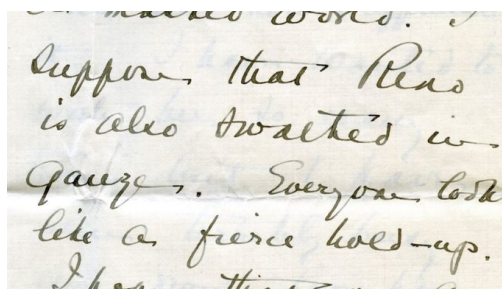 a masked world. I
suppose that Reno
is also swathed in
gauze. Everyone look
like a fierce hold-up.
I hope this